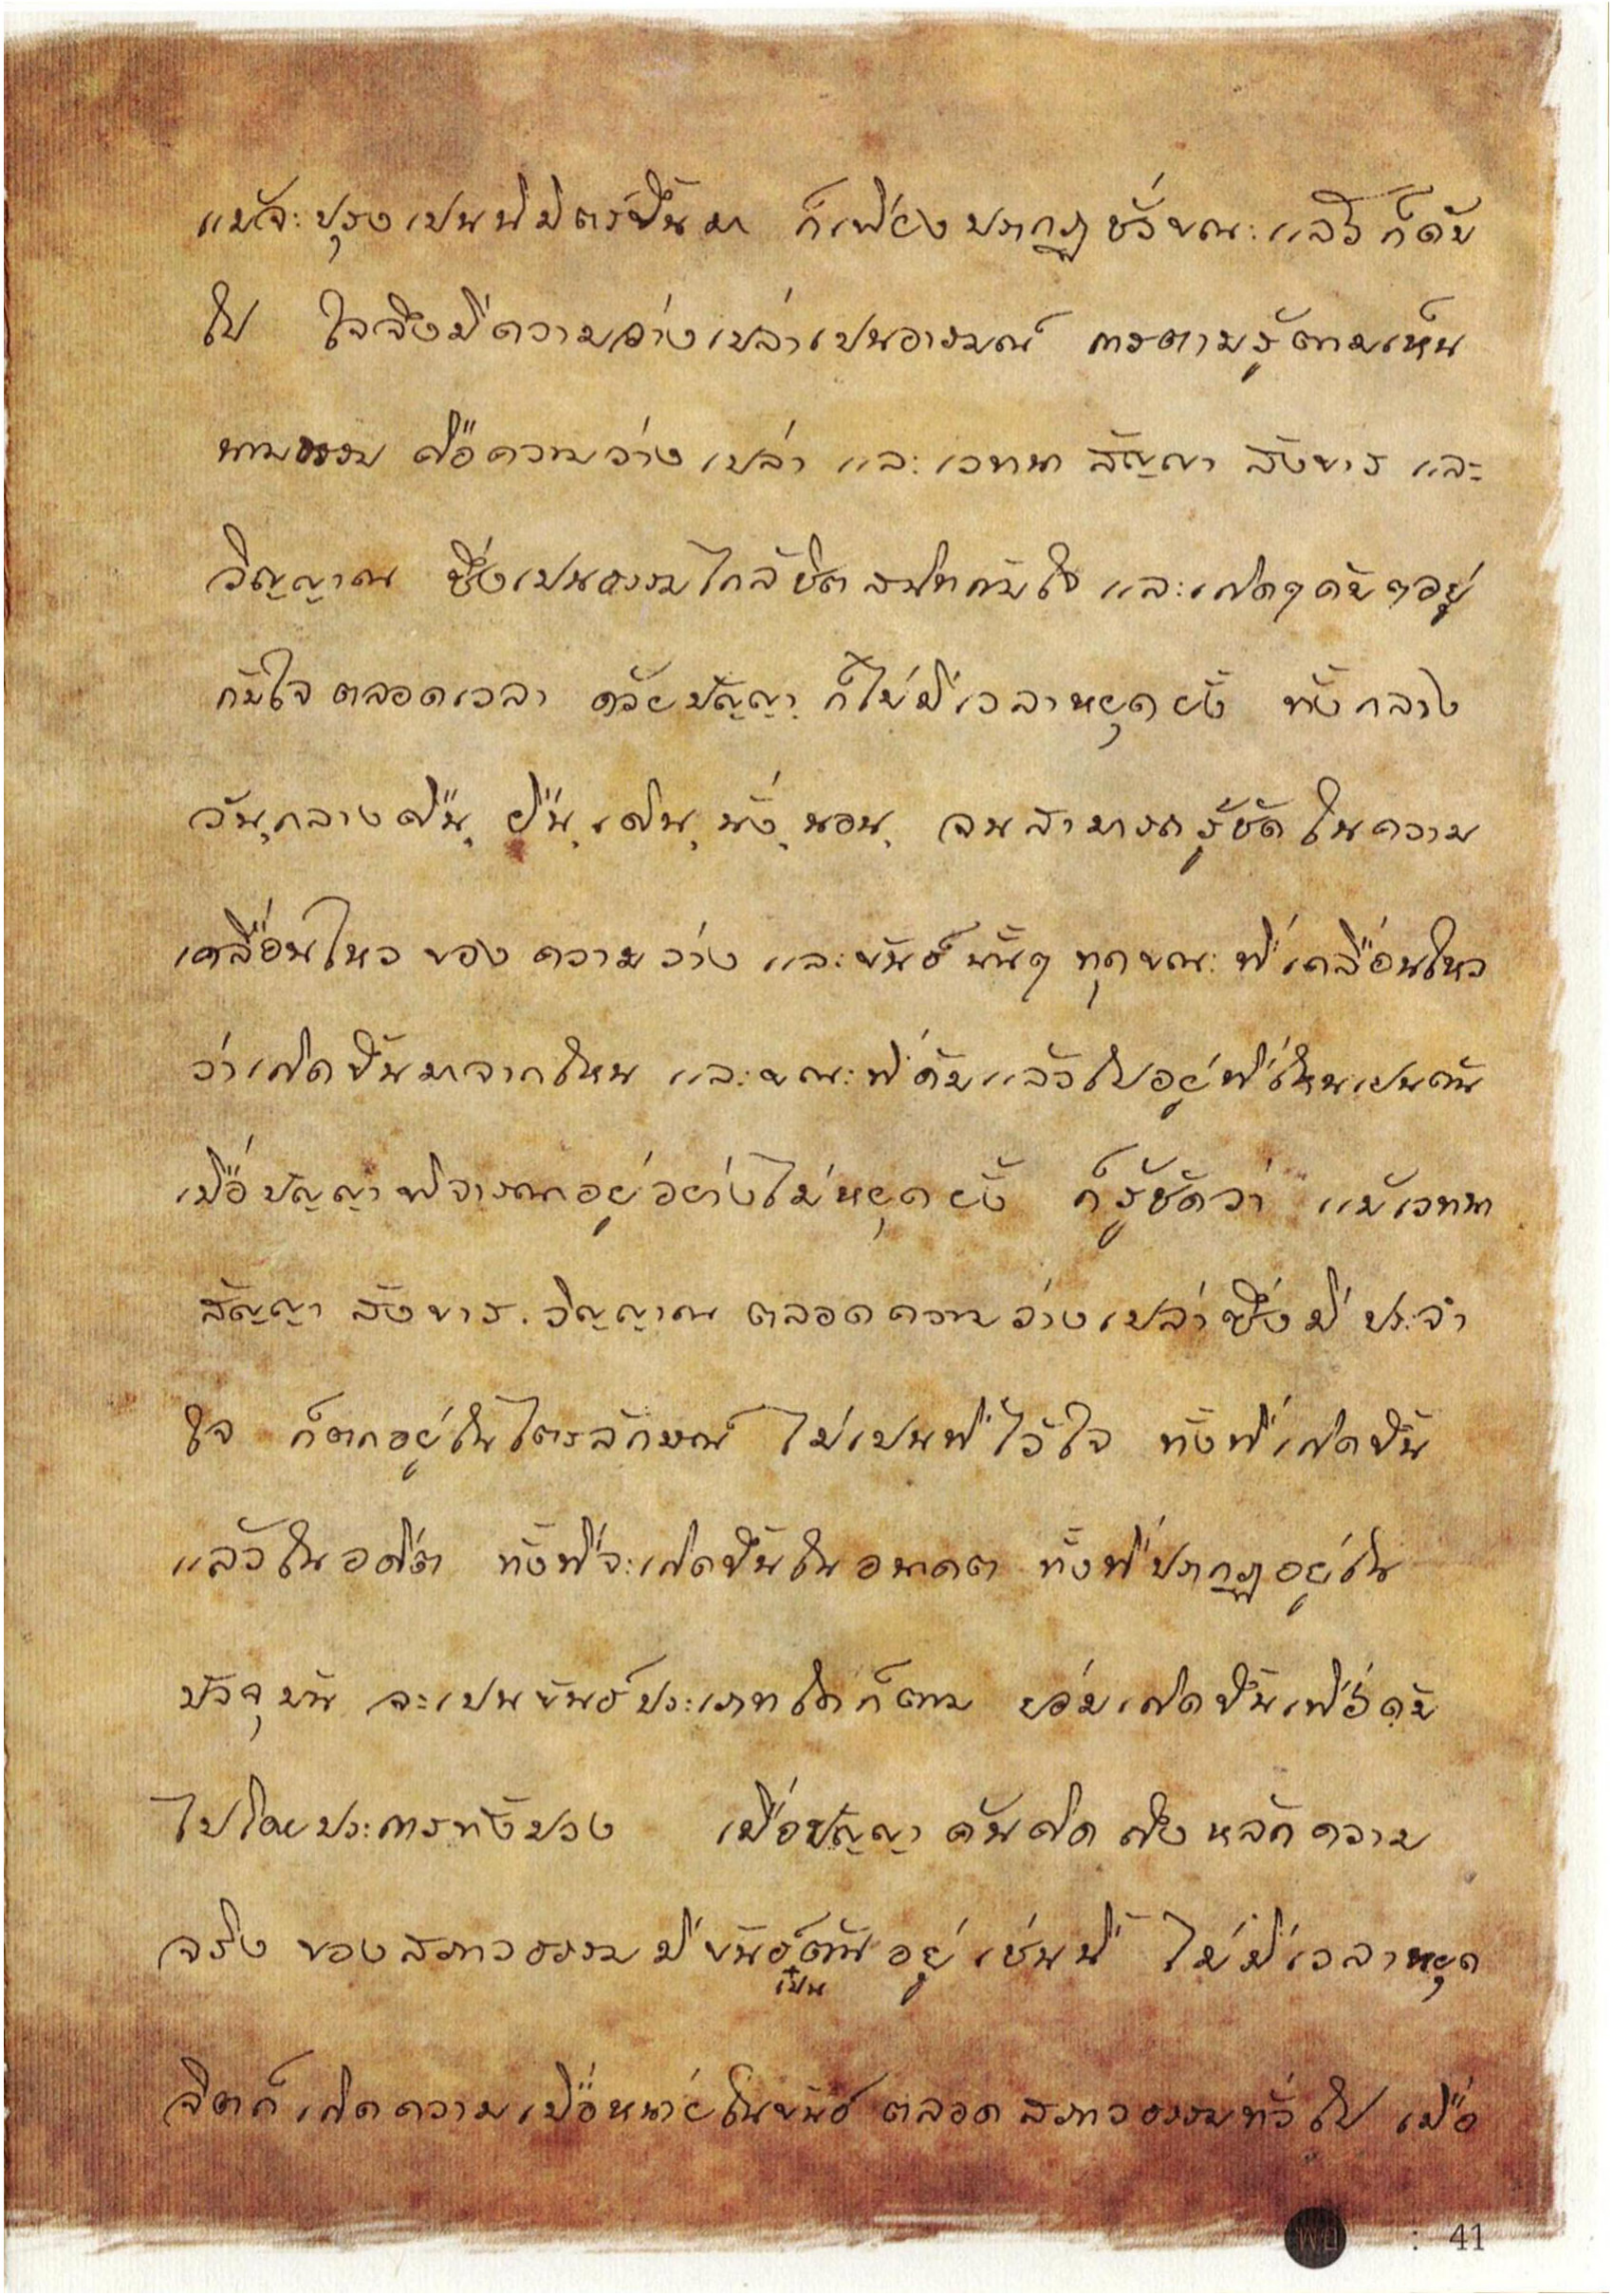 แม้จะปรุงเปนนิมิตร์ขึ้นมา ก็เพียงปรากฏชั่วขณะแล้วก็ดับ
ไป ใจจึงมีความว่างเปล่าเปนอารมณ์ การตามรู้ตามเห็น
นามธรรม คือความว่างเปล่า และเวทนา สัญญา สังขาร และ
วิญญาณ ซึ่งเปนธรรมใกล้ชิตสนิทกับใจ และเกิดๆดับๆอยู่
กับใจตลอดเวลา ด้วยปัญญา ก็ไม่มีเวลาหยุดยั้ง ทั้งกลาง
วัน,กลางคืน, ยืน,เดิน,นั่ง,นอน, จนสามารถรู้ชัดในความ
เคลื่อนไหวของความว่าง และขันธ์นั้นๆ ทุกขณะที่เคลื่อนไหว
ว่าเกิดขึ้นมาจากไหน และขณะที่ดับแล้วไปอยู่ที่ไหนเปนต้น
เมื่อปัญญาพิจารณาอยู่อย่างไม่หยุดยั้ง ก็รู้ชัดว่า แม้เวทนา
สัญญา สังขาร.วิญญาณ ตลอดความว่างเปล่าซึ่งมีประจำ
ใจ ก็ตกอยู่ในไตรลักษณ์ ไม่เปนที่ไว้ใจ ทั้งที่เกิดขึ้น
แล้วในอดีต ทั้งที่จะเกิดขึ้นในอนาคต ทั้งที่ปรากฏอยู่ใน
ปัจจุบัน จะเปนขันธ์ประเภทใดก็ตาม ย่อมเกิดขึ้นเพื่อดับ
ไปโดยประการทั้งปวง เมื่อปัญญาค้นคิดถึงหลักความ
จริงของสภาวธรรมมีขันธ์เป็นต้นอยู่เช่นนี้ ไม่มีเวลาหยุด
จิตก็เกิดความเบื่อหน่ายในขันธ์ ตลอดสภาวธรรมทั่วไป เมื่อ
: 41